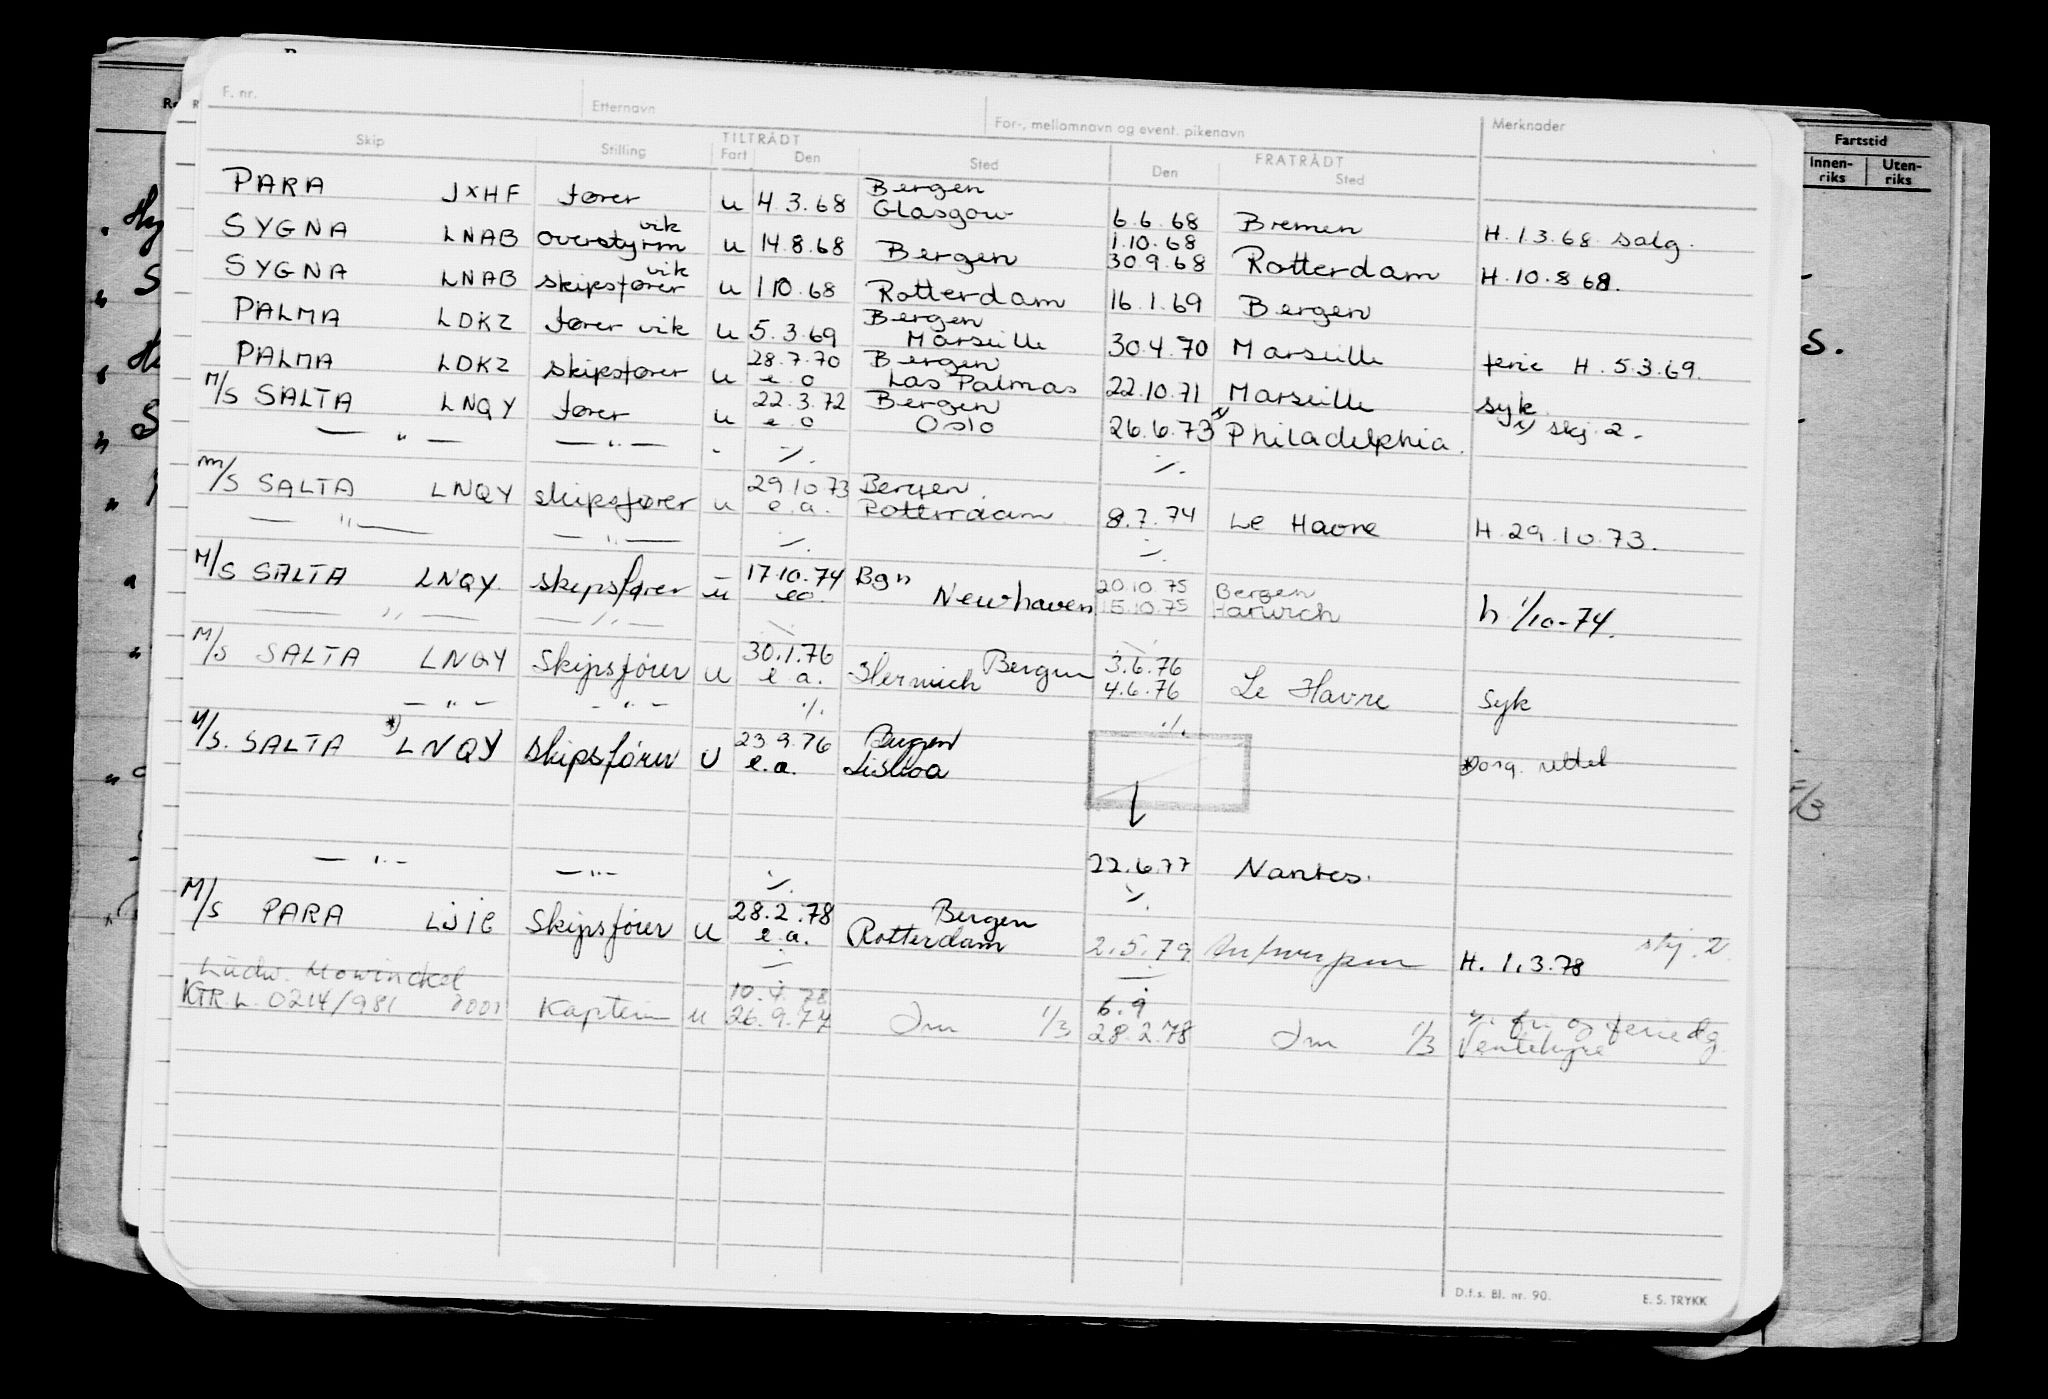 F. nr. Etternavn For-, mellomnavn og event. pikenavn Merknader
Skip Stilling TILTRÅDT Fart Den Sted FRATRÅDT Den Sted
Fartstid
Innen-riks Uten-riks
PARA JXHF fører u 4.3.68 Bergen Glasgow 6.6.68 Bremen H.1.3.68 salg.
SYGNA LNAB overstyrm vik u 14.8.68 Bergen 1.10.68 30.9.68 Rotterdam H.10.8.68.
SYGNA LNAB skipsfører vik u 1 10.68 Rotterdam 16.1.69 Bergen
PALMA LDKZ fører vik u 5.3.69 Bergen Marseille 30.4.70 Marseille ferie H.5.3.69.
PALMA LDKZ skipsfører u 28.7.70 e.o Bergen Las Palmas 22.10.71 Marseille syk.
M/S SALTA LNQY fører u 22.3.72 e.o Bergen Oslo 26.6.73 Philadelphia. skj. 2.
— " — — " — - ./. ./.
M/S SALTA LNQY skipsfører u 29.10.73 e.a. Bergen. Rotterdam 8.7.74 Le Havre H.29.10.73.
— " — — " — ./. ./.
M/S SALTA LNQY. skipsfører u 17.10.74 eo. Bgn Newhaven 20.10.75 15.10.75 Bergen Harwich h. 1/10-74.
— " — — " —
M/S SALTA LNQY Skipsfører u 30.1.76 e.a. Bergen 3.6.76 4.6.76 Le Havre Syk
— " — — " — ./. ./.
M/S. SALTA *) LNQY skipsfører U 23 9.76 e.a. Bergen Lisboa *) org. rettet
— " — — " — ./. 22.6.77 Nantes. ./.
M/S PARA LIJE Skipsfører u 28.2.78 e.a. Bergen Rotterdam 2.5.79 Antwerpen H. 1.3.78 skj. 2
Ludw. Mowinckel
KTR.L. 0214/981 0001 Kaptein u 10.4.78 26.9.77 1/3 6.9 28.2.78 1/3 fri og feriedg.
D.f.s. Bl. nr. 90. E. S. TRYKK